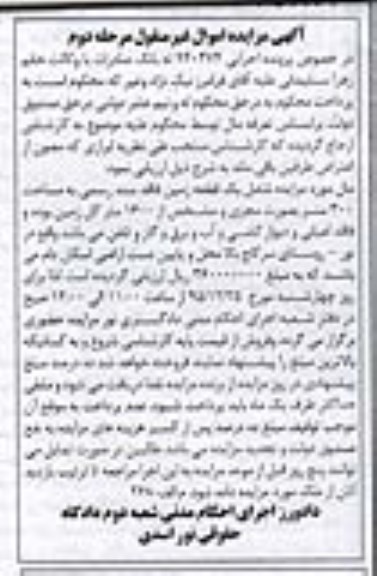 آگهی مزایده اموال غیر منقول مرحله دوم
در خصوص پرونده اجرایی بانک صادرات با وکالت خانم
زهرا سلیمانی علیه آقای فرامرز نیک نژاد وغیره که محکوم است به
پرداخت محکوم به در حق محکوم له و نیم عشر دولتی در حق صندوق
دولت براساس تعرفه مال توسط محکوم علیه موضوع به کارشناسی
ارجاع گردیده که کارشناس منتخب طی نظریه ابرازی که مصون از
اعتراض طرفین باقی مانده به شرح ذیل ارزیابی نمود
مال مورد مزایده شامل یک قطعه زمین فاقد سند رسمی به مساحت
۳۰۰ متر بصورت مجزی و مشخص از ۱۶۰۰ متر کل زمین بوده و
فاقد اعیانی و دیوار کشی و آب و برق و گاز و تلفن می باشد واقع در
نور - روستای محل و پایین دست اراضی می
باشد که به مبلغ ریال ارزیابی گردیده است لذا برای
روز چهارشنبه مورخ ۹۵/۱۲/۲۵ از ساعت ۱۱:۰۰ الی ۱۲:۰۰ صبح
در دفتر شعبه اجرای احکام مدنی دادگستری نور مزایده حضوری
برگزار می گردد وفروش از قیمت پایه کارشناسی شروع و به کسانیکه
بالاترین مبلغ را پیشنهاد نمایند فروخته خواهد شد ده درصد مبلغ
پیشنهادی در روز مزایده از برنده مزایده نقدا دریافت می شود و مابقی
حداکثر ظرف یک ماه باید پرداخت شود عدم پرداخت به موقع آن
موجب توقیف مبلغ ده درصد پس از کسر هزینه های مزایده به نفع
صندوق دولت و تجدید مزایده می باشد طالبین در صورت تمایل می
توانند پنج روز قبل از موعد مزایده به این اجرا مراجعه تا ترتیب بازدید
آنان از ملک مورد مزایده داده شود
دادورز اجرای احکام مدنی شعبه دوم دادگاه
حقوقی نور اسدی